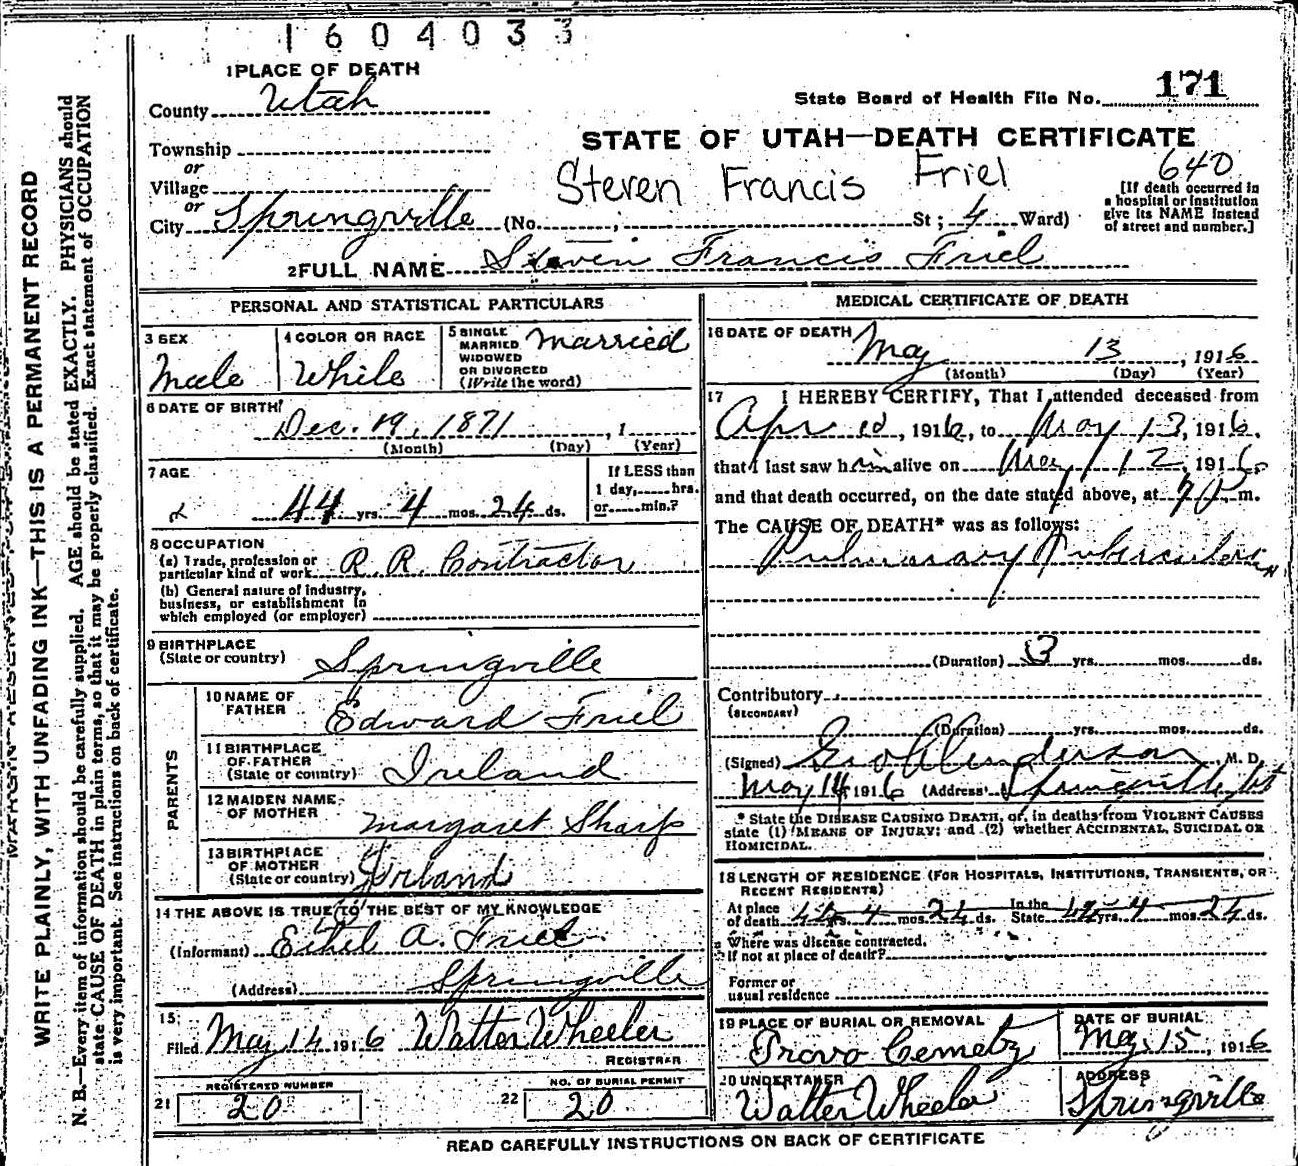 1604033
1 PLACE OF DEATH
County Utah
State Board of Health File No. 171
STATE OF UTAH—DEATH CERTIFICATE
Township
or
Village
or
City Springville (No. , St; 4 Ward)
Steven Francis Friel
640
[If death occurred in
a hospital or institution
give its NAME instead
of street and number.]
2 FULL NAME Steven Francis Friel
PERSONAL AND STATISTICAL PARTICULARS
3 SEX
Male
4 COLOR OR RACE
White
5 SINGLE
MARRIED
WIDOWED
OR DIVORCED
(Write the word)
Married
6 DATE OF BIRTH
Dec. 19, 1871 , 1
(Month) (Day) (Year)
7 AGE
44 yrs. 4 mos. 24 ds.
If LESS than
1 day, hrs.
or min.?
8 OCCUPATION
(a) Trade, profession or
particular kind of work R. R. Contractor
(b) General nature of industry,
business, or establishment in
which employed (or employer)
9 BIRTHPLACE
(State or country) Springville
PARENTS
10 NAME OF
FATHER Edward Friel
11 BIRTHPLACE
OF FATHER
(State or country) Ireland
12 MAIDEN NAME
OF MOTHER Margaret Sharp
13 BIRTHPLACE
OF MOTHER
(State or country) Irland
14 THE ABOVE IS TRUE TO THE BEST OF MY KNOWLEDGE
(Informant) Ethel A. Friel
(Address) Springville
15
Filed May 14 1916 Walter Wheeler
REGISTRAR
REGISTERED NUMBER
21 20
NO. OF BURIAL PERMIT
22 20
MEDICAL CERTIFICATE OF DEATH
16 DATE OF DEATH
May 13 , 1916
(Month) (Day) (Year)
17 I HEREBY CERTIFY, That I attended deceased from
Apr 10, 1916, to May 13, 1916,
that I last saw him alive on May 12, 1916,
and that death occurred, on the date stated above, at 7 P m.
The CAUSE OF DEATH* was as follows:
Pulmonary Tuberculosis
(Duration) 3 yrs. mos. ds.
Contributory
(SECONDARY)
(Duration) yrs. mos. ds.
(Signed) Geo Anderson, M. D.
May 14, 1916 (Address) Springville, Ut
* State the DISEASE CAUSING DEATH, or, in deaths from VIOLENT CAUSES
state (1) MEANS OF INJURY; and (2) whether ACCIDENTAL, SUICIDAL OR
HOMICIDAL.
18 LENGTH OF RESIDENCE (FOR HOSPITALS, INSTITUTIONS, TRANSIENTS, OR
RECENT RESIDENTS)
At place
of death 44 yrs. 4 mos. 24 ds. In the
State 44 yrs. 4 mos. 24 ds.
Where was disease contracted,
if not at place of death?
Former or
usual residence
19 PLACE OF BURIAL OR REMOVAL
Provo Cemetry
DATE OF BURIAL
May 15, 1916
20 UNDERTAKER
Walter Wheeler
ADDRESS
Springville
READ CAREFULLY INSTRUCTIONS ON BACK OF CERTIFICATE
MARGIN RESERVED FOR BINDING
WRITE PLAINLY, WITH UNFADING INK—THIS IS A PERMANENT RECORD
N. B.—Every item of information should be carefully supplied. AGE should be stated EXACTLY. PHYSICIANS should
state CAUSE OF DEATH in plain terms, so that it may be properly classified. Exact statement of OCCUPATION
is very important. See instructions on back of certificate.